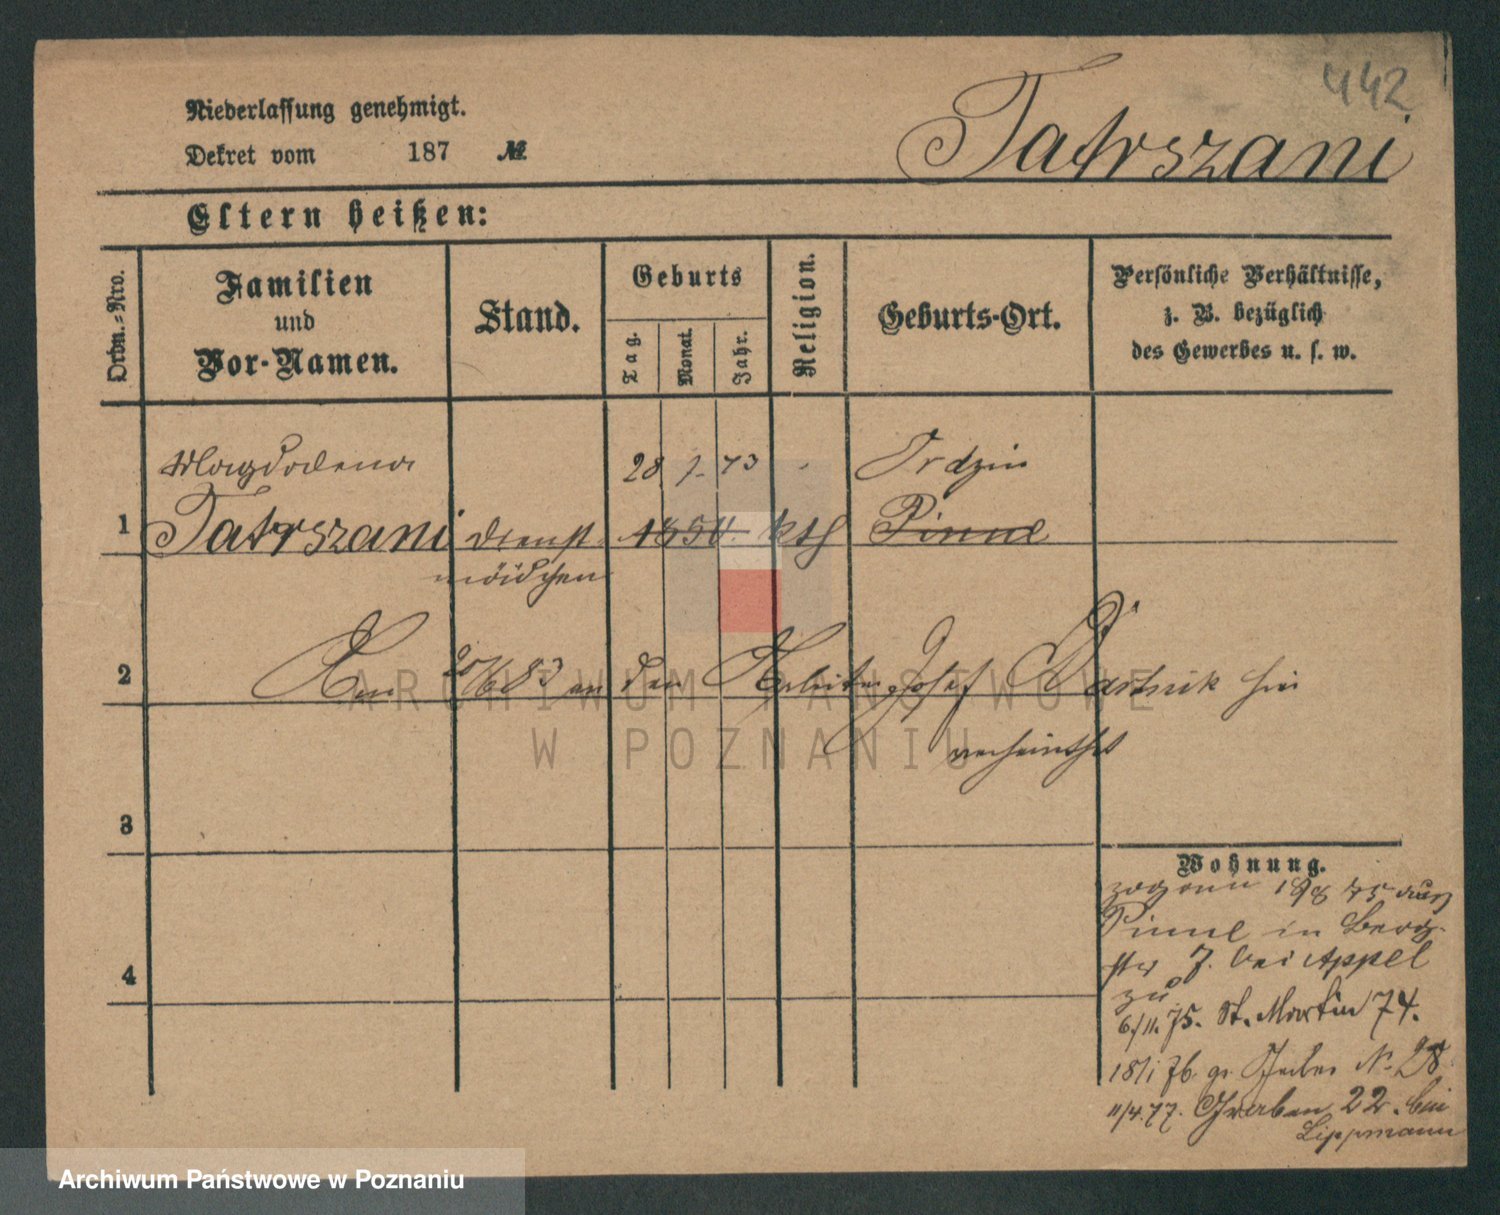 442
Niederlassung genehmigt.
Tatrszani
Dekret vom 187 №
Eltern heißen:
Ordn.-Nro.
Familien
und
Vor-Namen.
Stand.
Geburts
Tag.
Monat.
Jahr.
Religion.
Geburts-Ort.
Persönliche Verhältnisse,
z. B. bezüglich
des Gewerbes u. s. w.
Magdalena 28 7. Ordzin
1 Tatrszani Dienst 1850. kth Pinne
mädchen
2 Am 20/6 83 an den Arbeiter Josef hier
verheirathet
3
4
Wohnung.
zog am 19/8 75 aus
Pinne in Berg-
str 7. bei Appel
zu
6/11. 75. St. Martin 74.
18/1 76 gr. N. 28
11/4. 77. Graben 22. bei
Lippmann
ARCHIWUM PAŃSTWOWE
W POZNANIU
Archiwum Państwowe w Poznaniu